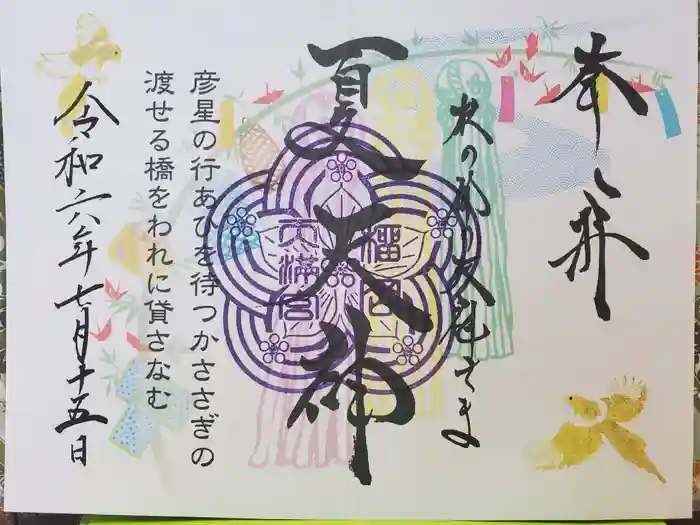 奉拝
水の都の天神さま
夏天神
榴岡
天満宮
彦星の行あひを待つかささぎの
渡せる橋をわれに貸さなむ
令和六年七月十五日